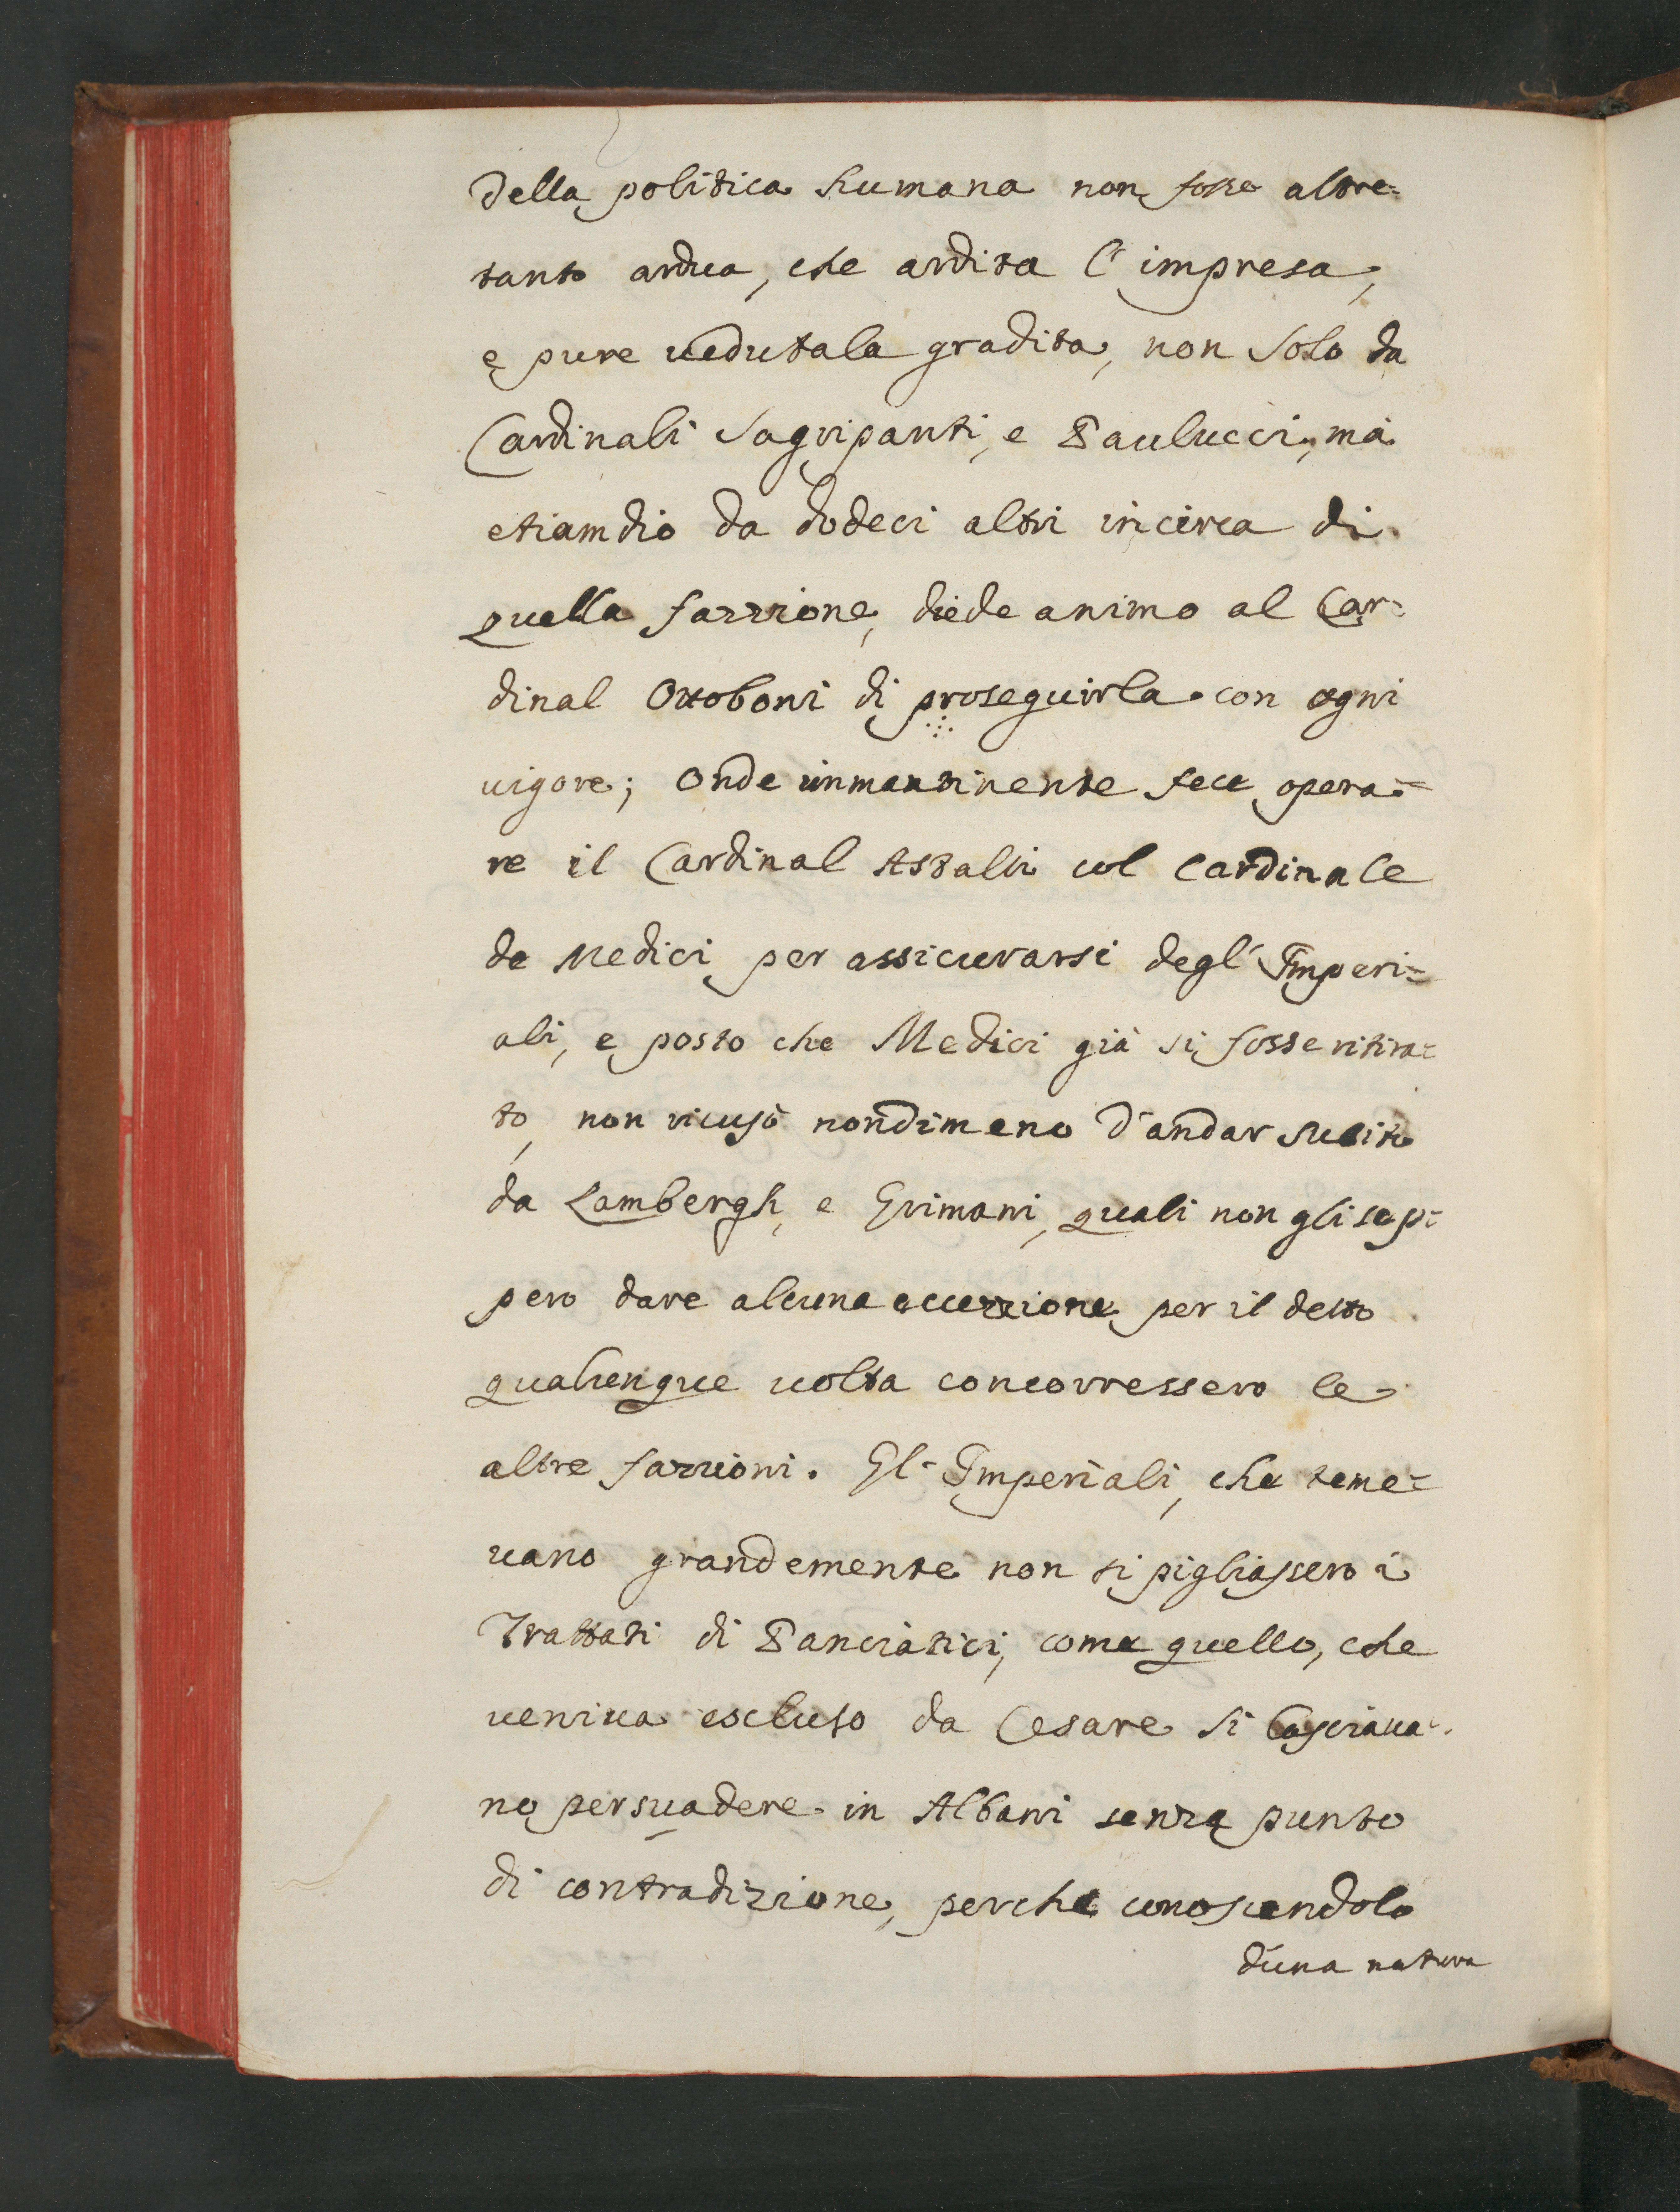 della politica humana non fosse altre=
tanto ardua, che ardita l'impresa,
e pure uedutala gradita, non solo da
Cardinali Sagripanti, e Paulucci, mà
etiamdio da dodeci altri incirca di
quella fazzione, diede animo al Car=
dinal Ottoboni di proseguirla con ogni
uigore; Onde inmantinente fece opera=
re il Cardinal Astalli col Cardinale
de Medici per assicurarsi degl'Imperi=
ali, e posto che Medici già si fosse ritira=
to, non ricusò nondimeno d'andar subito
da Lambergh, e Grimani, quali non gli sep=
pero dare alcuna eccezzione per il detto
qualunque uolta concorressero le
altre fazzioni. Gl'Imperiali, che teme=
uano grandemente non si pigliassero i
Trattati di Panciatici, come quello, che
ueniua escluso da Cesare si lasciaua=
no persuadere in Albani senza punto
di contradizione, perche conoscendolo
d'una natura